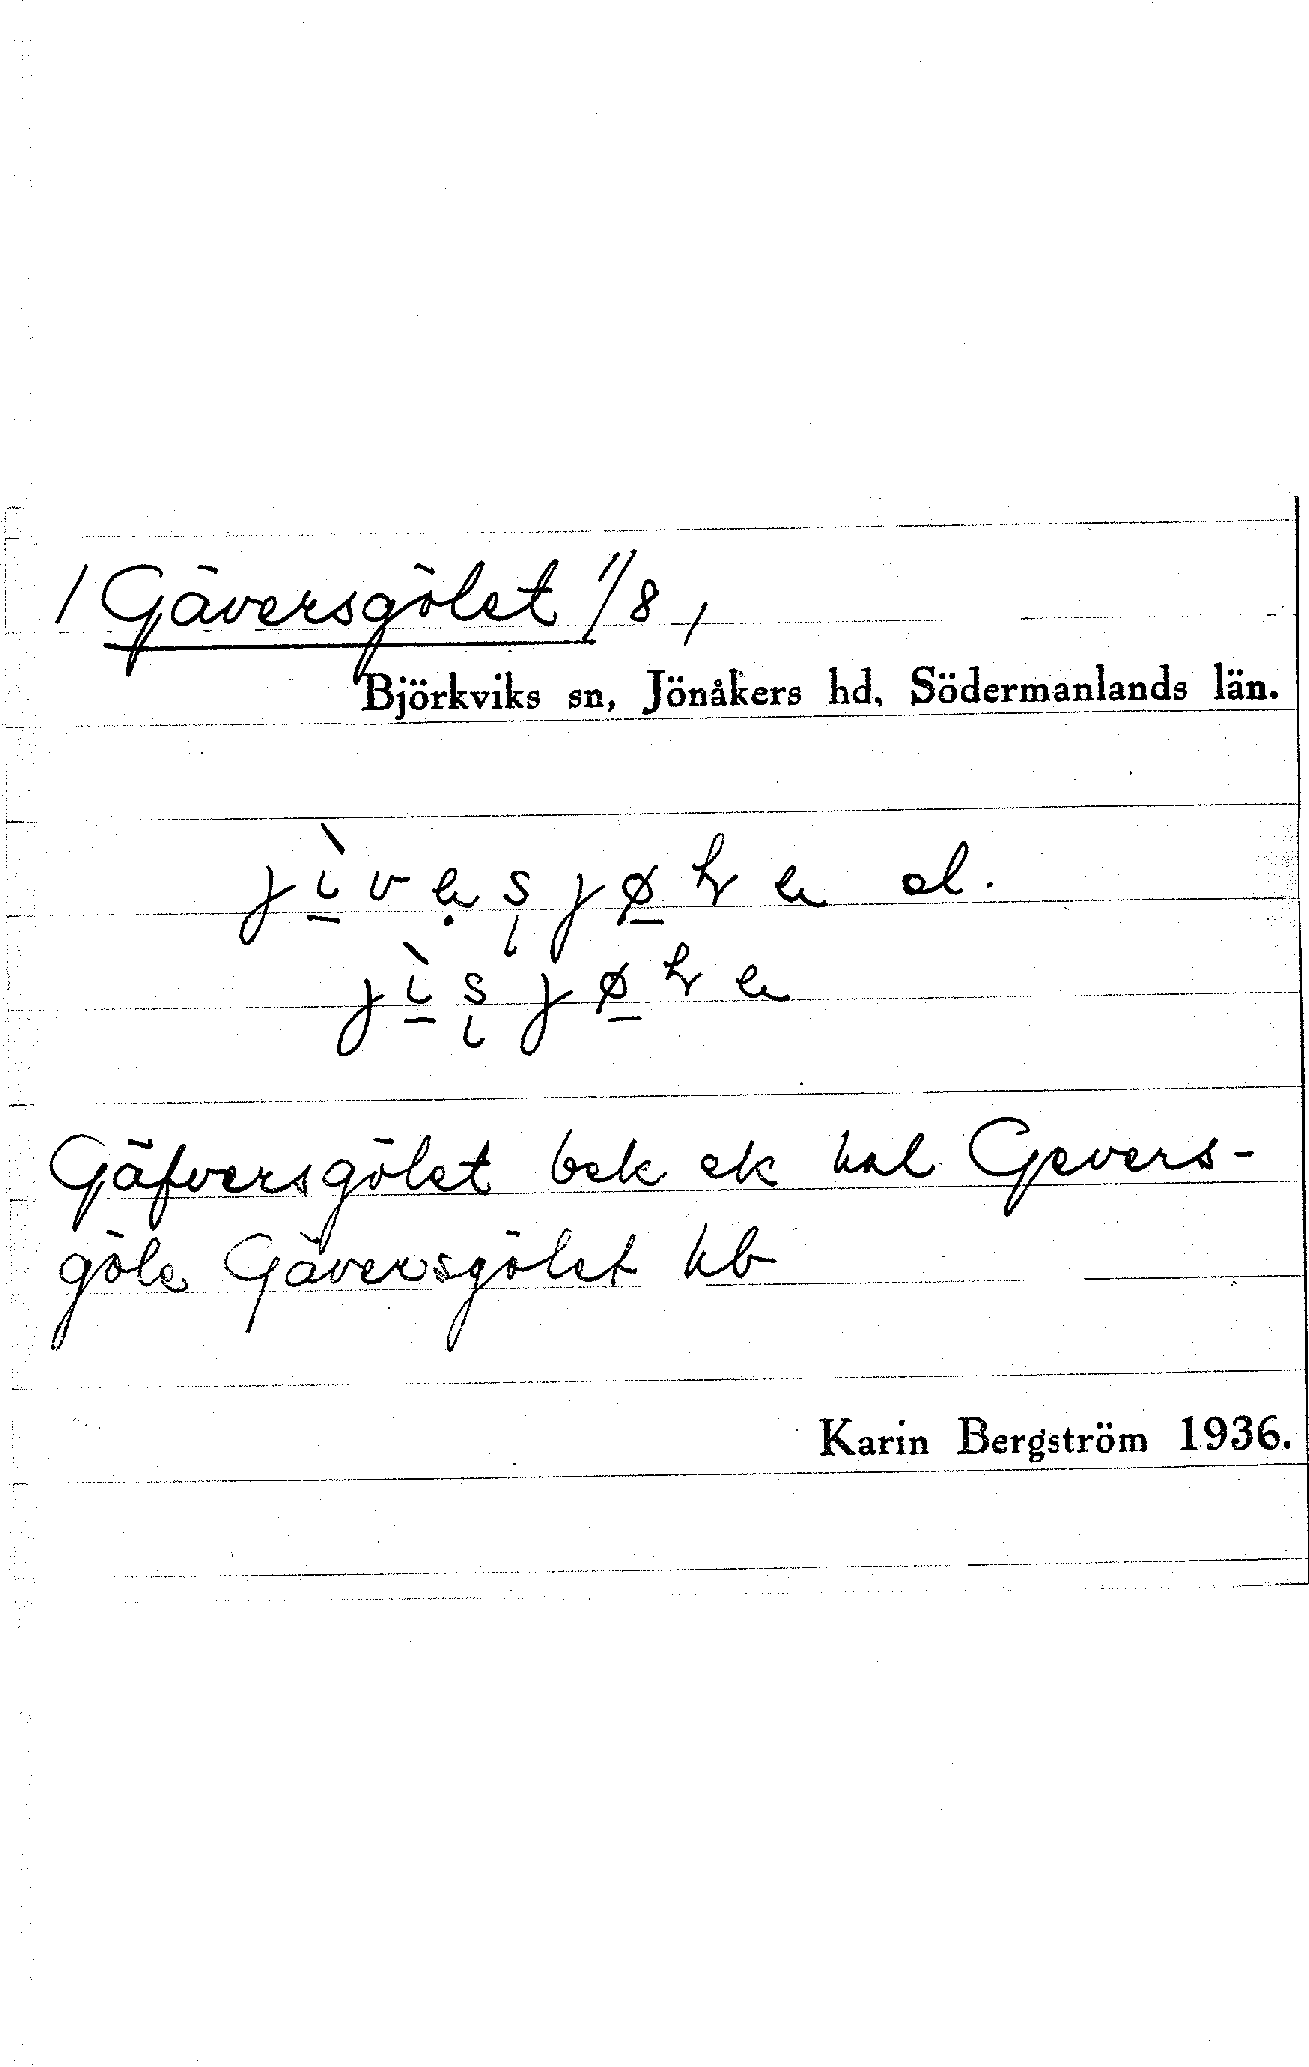 / Gäversgölet 1/8,
Björkviks sn, Jönåkers hd, Södermanlands län.
Gäfversgölet bek ek hal Gevers-
göle Gäversgölet hb
Karin Bergström 1936.